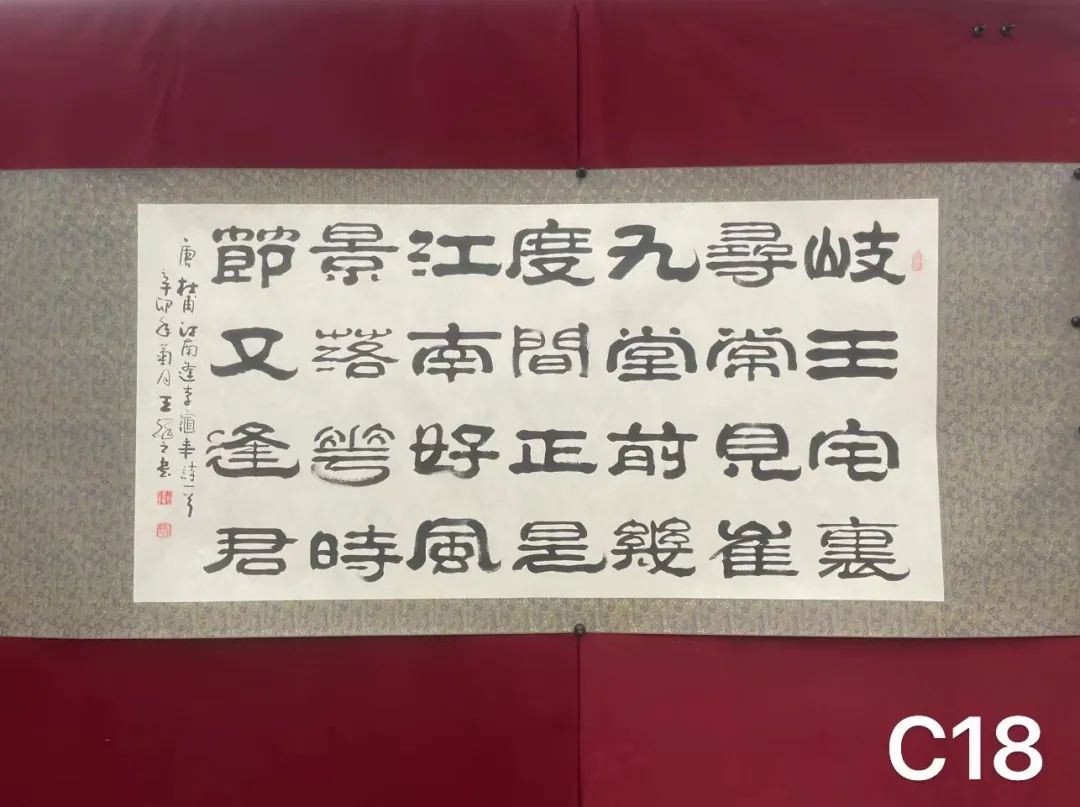 岐王宅裏
尋常見崔
九堂前幾
度間正是
江南好風
景落華時
節又逢君
唐杜甫江南逢李龜年詩一首
辛卯年菊月王之書
C18